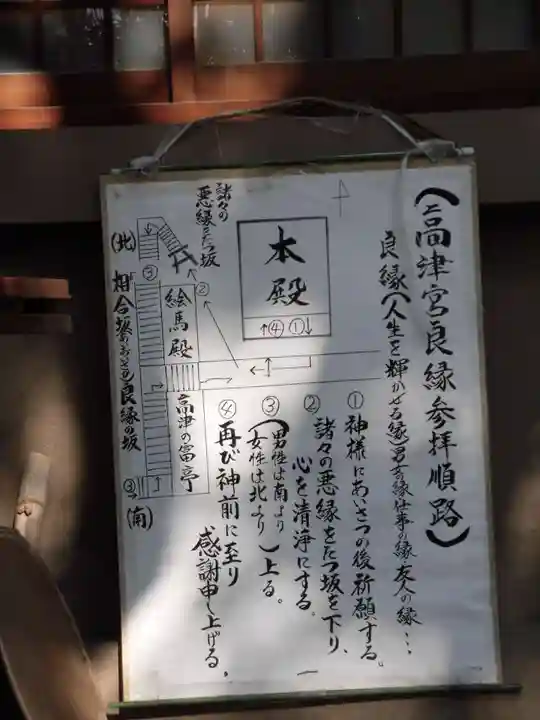 (高津宮良縁参拝順路)
良縁(人生を輝かせる縁)男女の縁仕事の縁友人の縁…
①神様にあいさつの後祈願する。
②諸々の悪縁をたつ坂を下り、
心を清浄にする。
③(男性は南より
女性は北より)上る。
④再び神前に至り
感謝申し上げる。
本殿
↑④①↓
諸々の
悪縁をたつ坂
②
絵馬殿
高津の富亭
(北)
③
相合坂
良縁の坂
③→
(南)